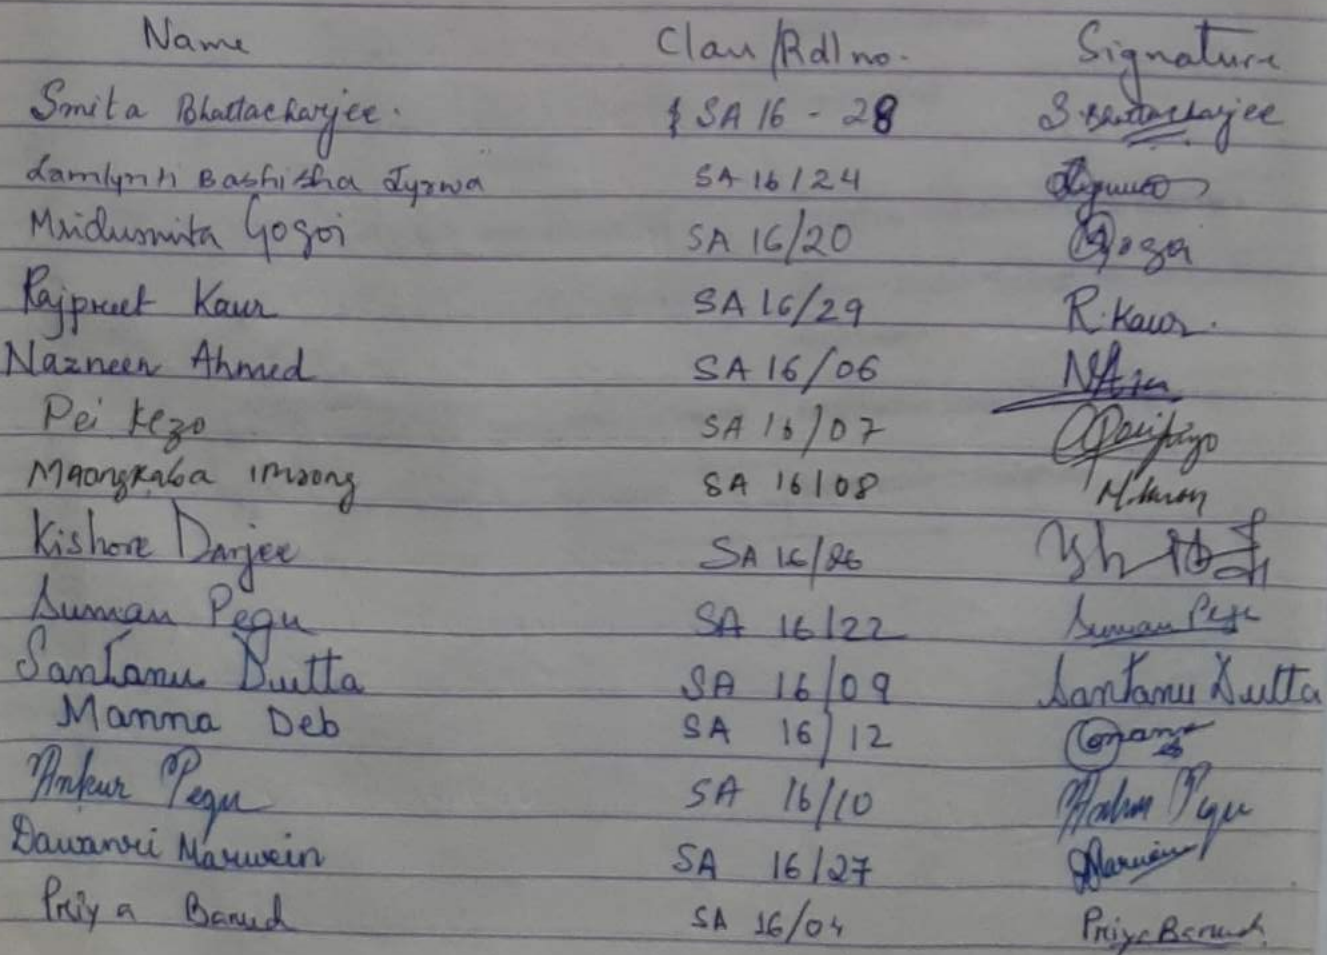 Name Class/Roll no. Signature
Smita Bhattacharjee. SA 16 - 28 S. Bhattacharjee
Lamlynti Bashisha Jyrwa SA 16/24
Mridusmita Gogoi SA 16/20 Gogoi
Rajpreet Kaur SA 16/29 R. Kaur.
Nazneen Ahmed SA 16/06
Pei Kezo SA 16/07
Maongkaba Imsong SA 16/08
Kishore Darjee SA 16/26
Suman Pegu SA 16/22 Suman Pegu
Santanu Dutta SA 16/09 Santanu Dutta
Manna Deb SA 16/12
Ankur Pegu SA 16/10 Ankur Pegu
Dawanri Marwein SA 16/27 Marwein
Priya Baruah SA 16/04 Priya Baruah